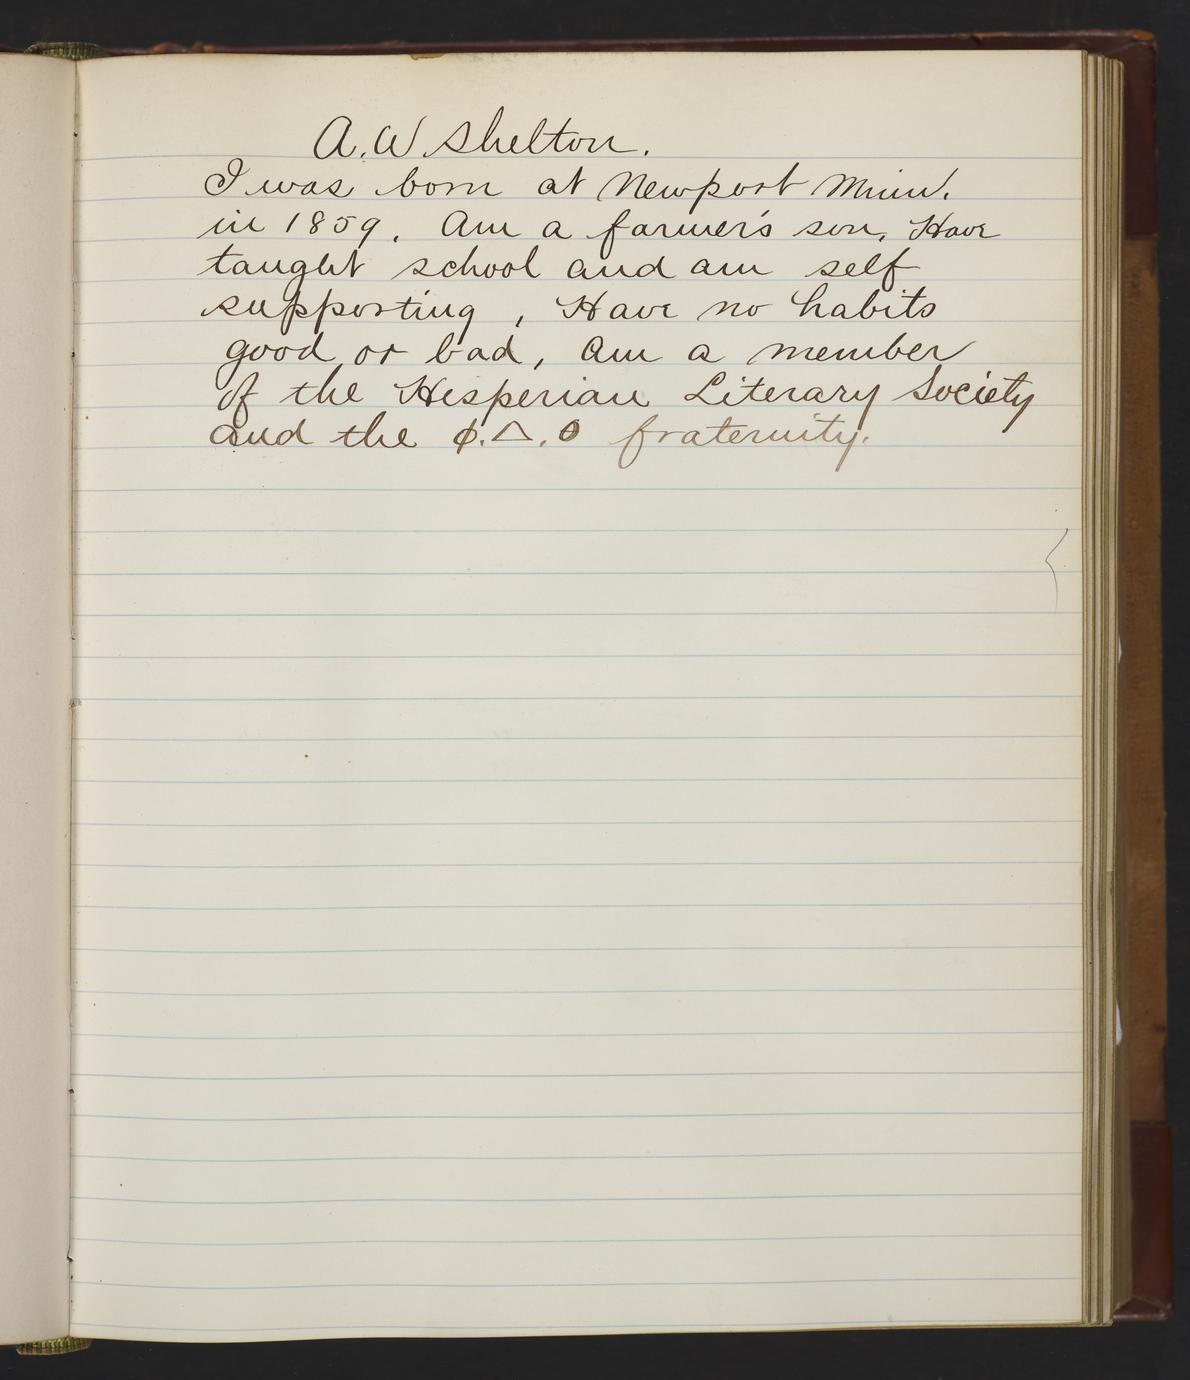 A. W Shelton.
I was born at Newport Minn.
in 1859. Am a farmer's son, Have
taught school and am self
supporting, Have no habits
good or bad, Am a member
of the Hesperian Literary Society
and the Φ.Δ.Θ fraternity.